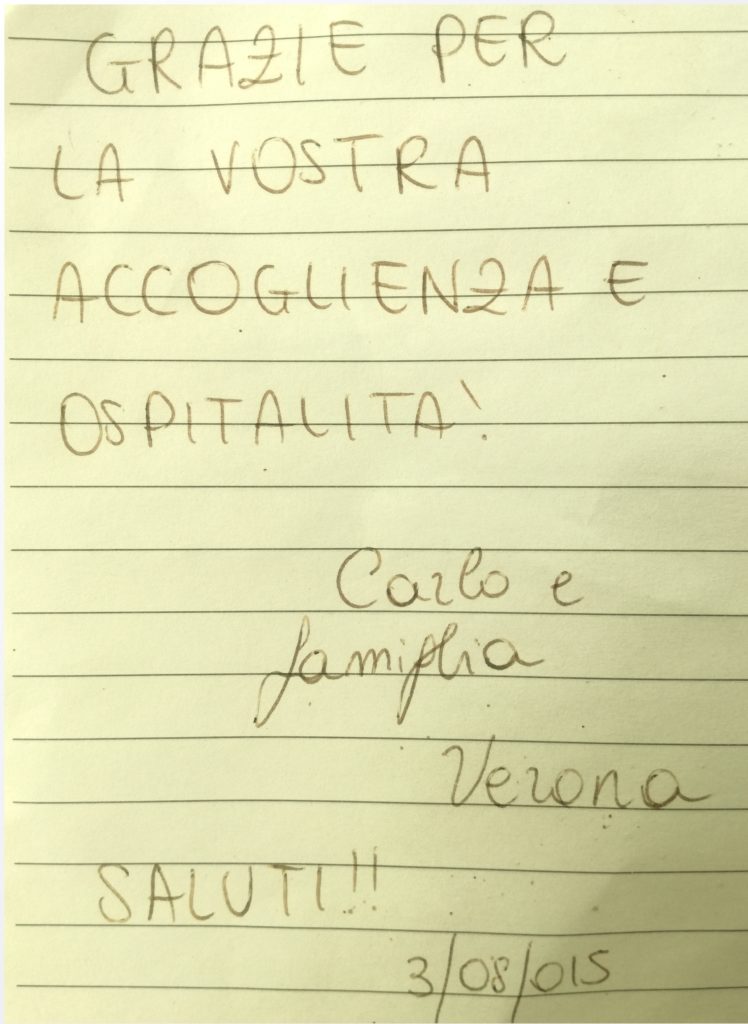 GRAZIE PER
LA VOSTRA
ACCOGLIENZA E
OSPITALITA'.
Carlo e
famiglia
Verona
SALUTI!!
3/08/015